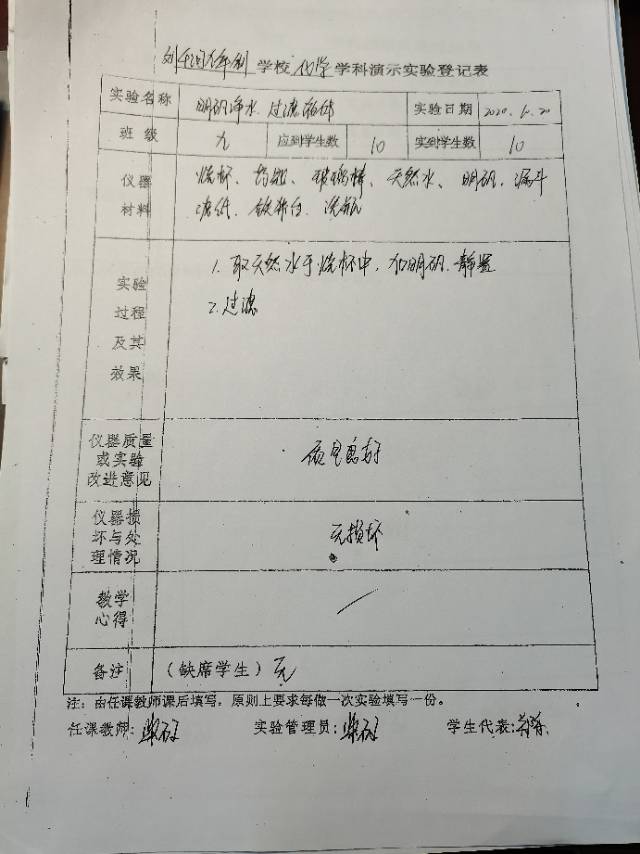 学校 化学 学科演示实验登记表
实验名称 明矾净水 过滤 实验日期 2020.6.20
班级 九 应到学生数 10 实到学生数 10
仪器 烧杯、药匙、玻璃棒、天然水、明矾、漏斗
材料 滤纸、铁架台、洗瓶
实验 1. 取天然水于烧杯中,加明矾.静置
过程 2. 过滤
及其
效果
仪器质量
或实验 质量良好
改进意见
仪器损
坏与处 无损坏
理情况
教学
心得
备注 (缺席学生) 无
注: 由任课教师课后填写,原则上要求每做一次实验填写一份。
任课教师: 实验管理员: 学生代表: